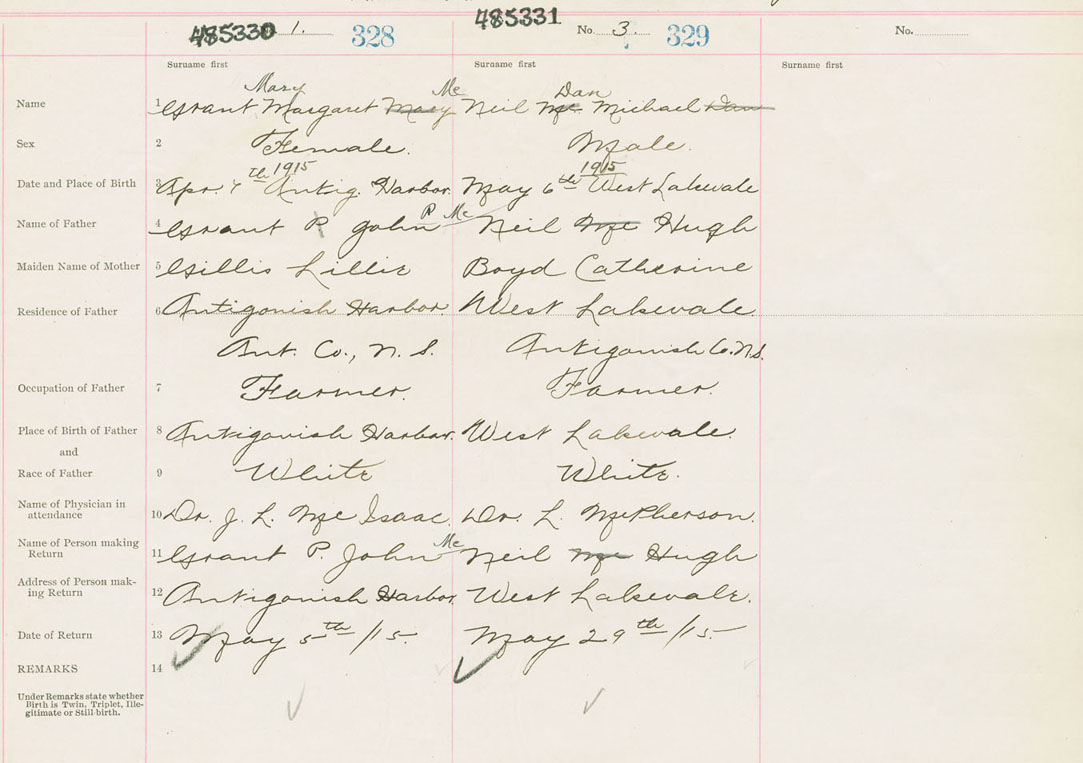 485330 1. 328 485331 No. 3. 329 No.
Surname first Surname first Surname first
Mary Mc Dan
Name 1 Grant Margaret Mary Neil Mc Michael Dan
Sex 2 Female. Male.
th 1915 1915
Date and Place of Birth 3 Apr. 4 Antig. Harbor. May 6th West Lakevale
P. Mc
Name of Father 4 Grant P. John Neil Mc Hugh
Maiden Name of Mother 5 Gillis Lillie Boyd Catherine
Residence of Father 6 Antigonish Harbor. West Lakevale
Ant. Co., N. S. Antigonish Co. N.S.
Occupation of Father 7 Farmer. Farmer.
Place of Birth of Father 8 Antigonish Harbor. West Lakevale.
and
Race of Father 9 White White.
Name of Physician in
attendance 10 Dr. J. L. McIsaac. Dr. L. McPherson.
Name of Person making
Return 11 Grant P. John Mc Neil Mc Hugh
Address of Person mak-
ing Return 12 Antigonish Harbor. West Lakevale.
Date of Return 13 May 5th /15. May 29th /15.
REMARKS 14
Under Remarks state whether
Birth is Twin, Triplet, Ille-
gitimate or Still-birth.